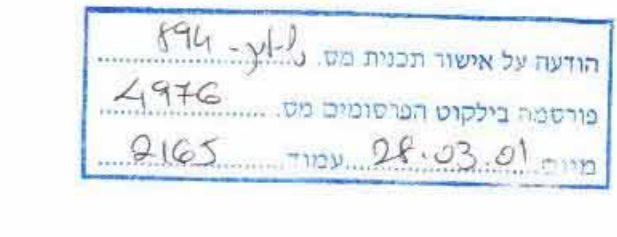 הודעה על אישור תכנית מס. 894
פורסמה בילקוט הפרסומים מס. 4976
מיום 28.03.01 עמוד 2165